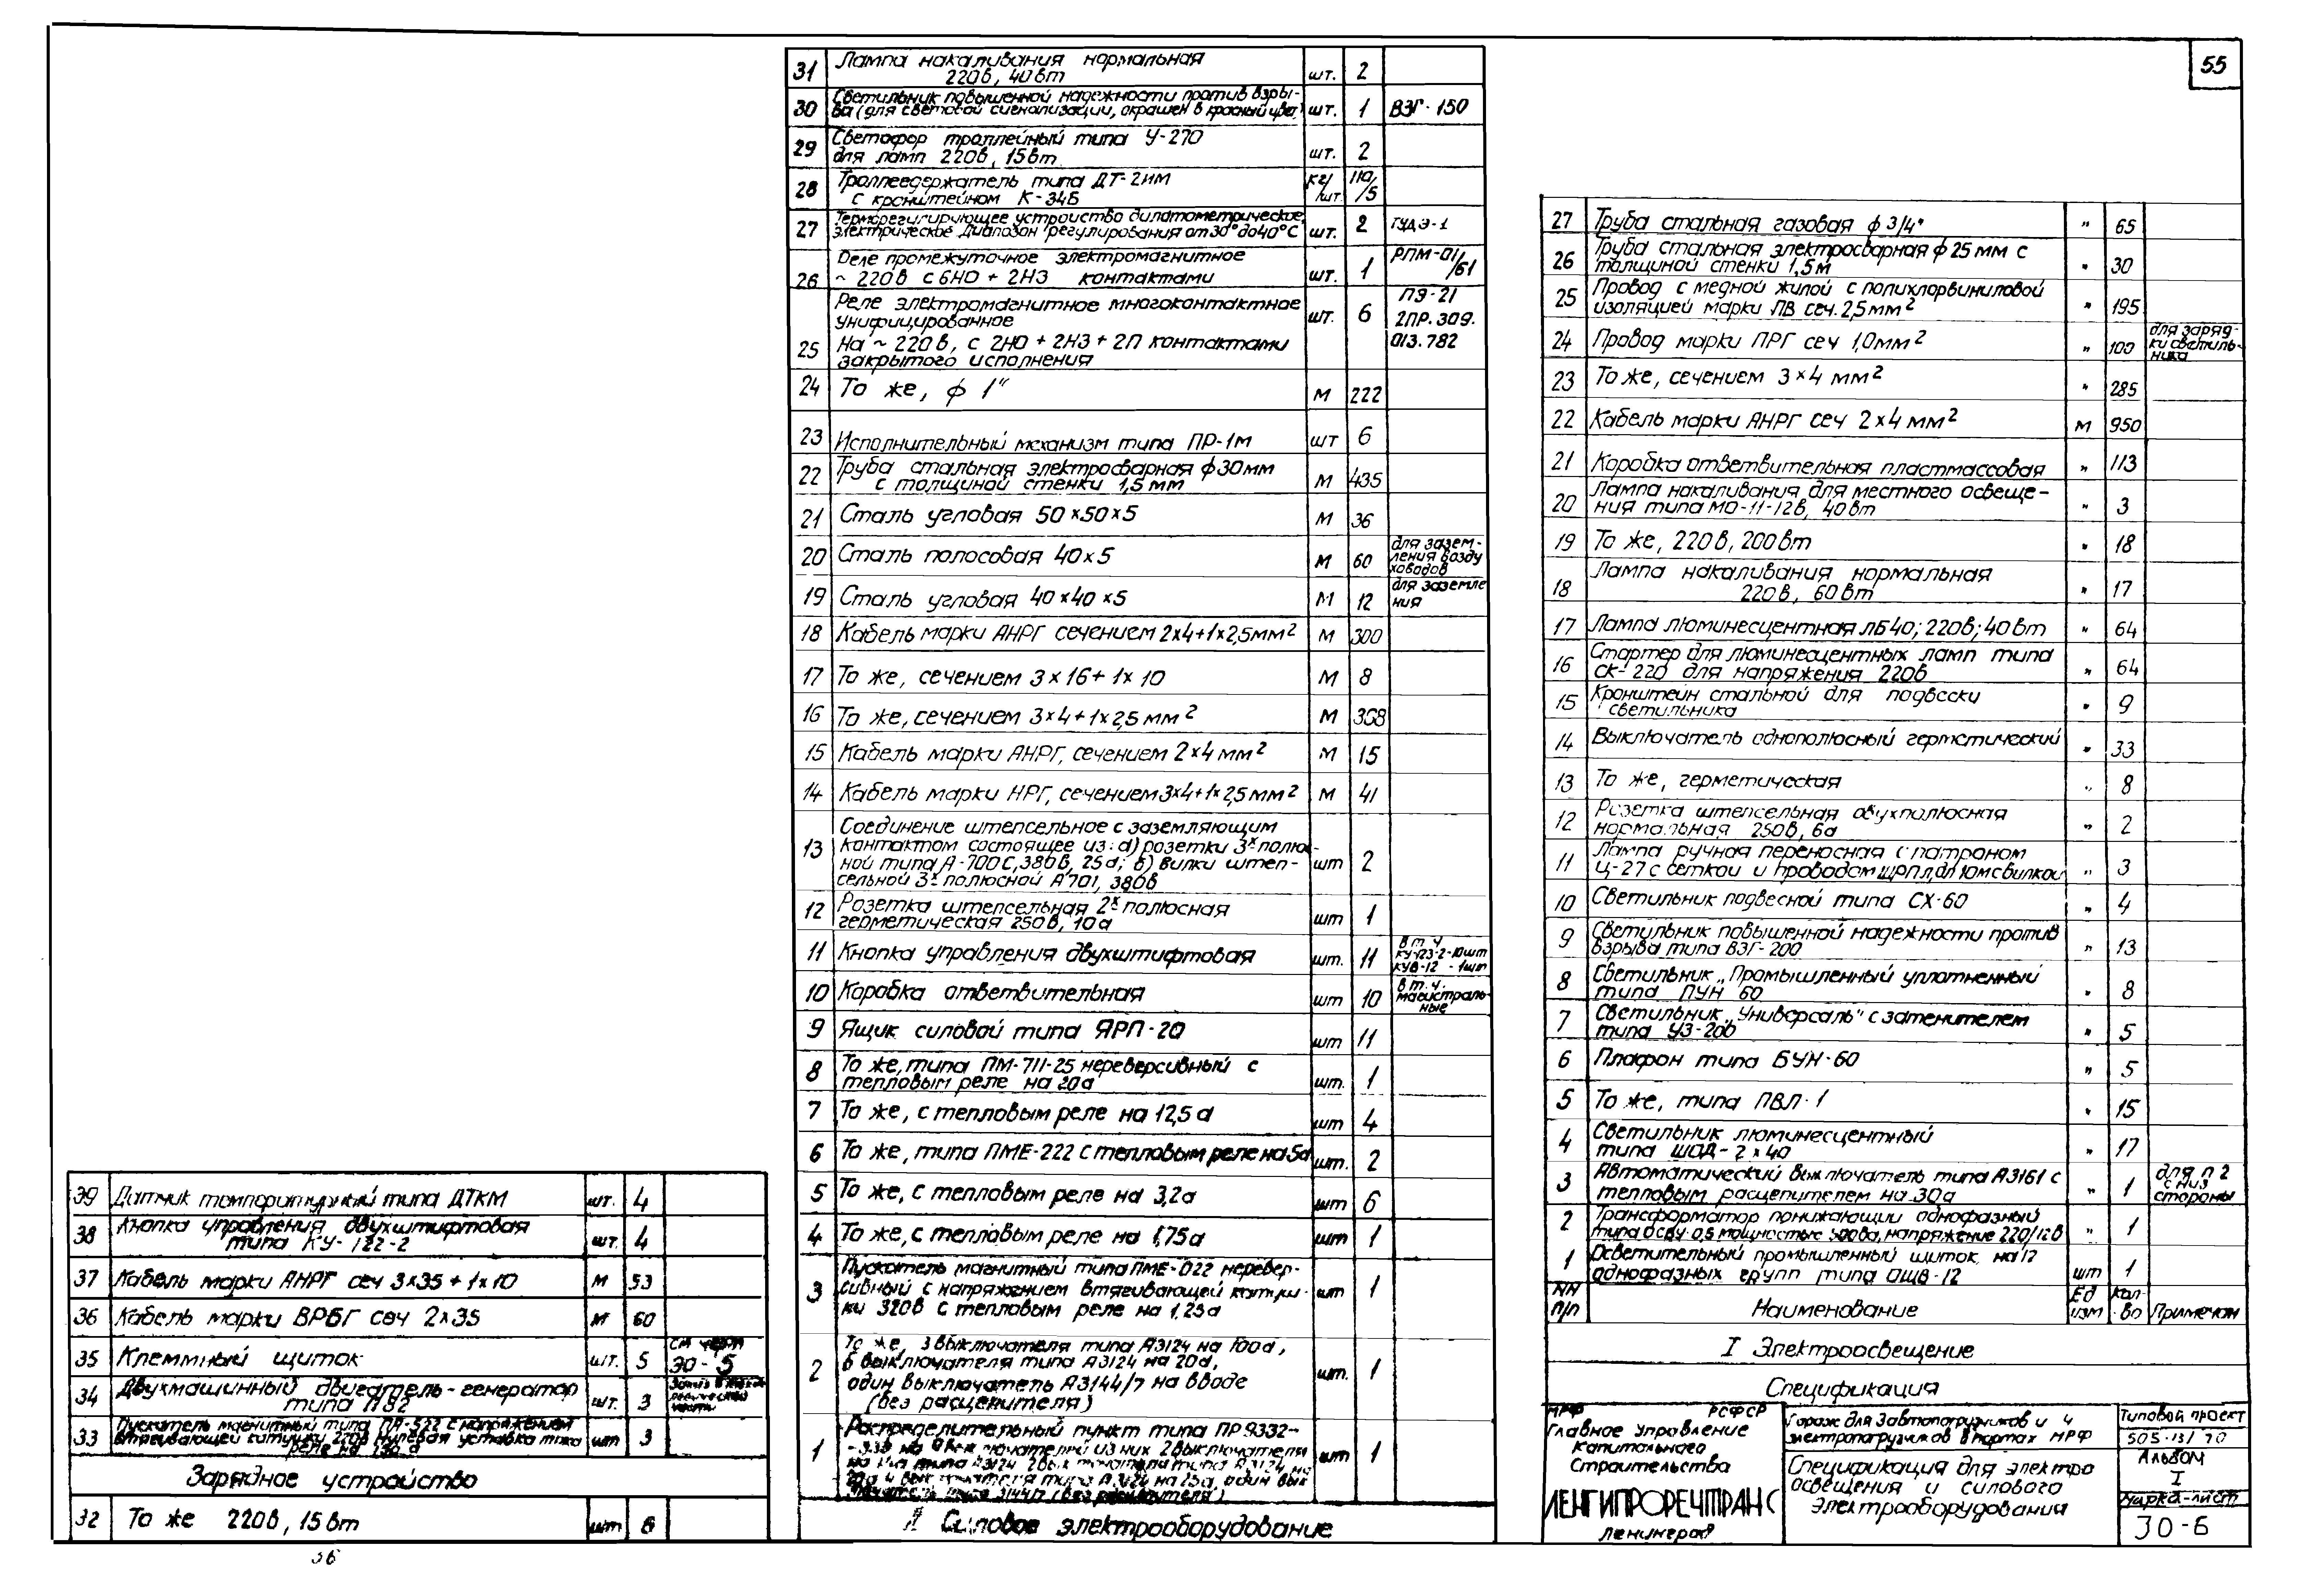 55
31 Лампа накаливания нормальная
220в, 40вт шт. 2
30 Светильник повышенной надежности против взры-
ва (для световой сигнализации, окрашен в красный цвет) шт. 1 ВЗГ-150
29 Светофор троллейный типа У-270
для ламп 220в, 15вт шт. 2
28 Троллеедержатель типа ДТ-2ИМ
с кронштейном К-34Б кг/шт. 110/5
27 Терморегулирующее устройство дилатометрическое,
электрическое Диапазон регулирования от 30° до 40°С шт. 2 ТУДЭ-1
26 Реле промежуточное электромагнитное
~ 220в с 6НО + 2НЗ контактами шт. 1 РПМ-01/61
25 Реле электромагнитное многоконтактное
унифицированное
На ~ 220в, с 2НО + 2НЗ + 2П контактами
закрытого исполнения шт. 6 ПЭ-21
2ПР.309.
013.782
24 То же, ф 1" м 222
23 Исполнительный механизм типа ПР-1м шт 6
22 Труба стальная электросварная ф30мм
с толщиной стенки 1,5мм м 435
21 Сталь угловая 50×50×5 м 36
20 Сталь полосовая 40×5 м 60 для зазем-
ления возду
ховодов
19 Сталь угловая 40×40×5 м 12 для заземле
ния
18 Кабель марки АНРГ сечением 2×4+1×2,5мм² м 300
17 То же, сечением 3×16+1×10 м 8
16 То же, сечением 3×4+1×2,5мм² м 368
15 Кабель марки АНРГ, сечением 2×4мм² м 15
14 Кабель марки НРГ, сечением 3×4+1×2,5мм² м 41
13 Соединение штепсельное с заземляющим
контактом состоящее из: а) розетки 3х полюс-
ной типа А-700С, 380в, 25а; б) вилки штеп-
сельной 3х полюсной А701, 380в шт 2
12 Розетка штепсельная 2х полюсная
герметическая 250в, 10а шт 1
11 Кнопка управления двухштифтовая шт. 11 в т.ч
КУ-123-2-10шт
КУВ-12 - 1шт
10 Коробка ответвительная шт 10 в т.ч.
магистраль-
ные
9 Ящик силовой типа ЯРП-20 шт 11
8 То же, типа ПМ-711-25 нереверсивный с
тепловым реле на 20а шт. 1
7 То же, с тепловым реле на 12,5а шт 4
6 То же, типа ПМЕ-222 с тепловым реле на 5а шт. 2
5 То же, с тепловым реле на 3,2а шт 6
4 То же, с тепловым реле на 1,75а шт 1
3 Пускатель магнитный типа ПМЕ-022 неревер-
сивный с напряжением втягивающей катуш-
ки 320в с тепловым реле на 1,25а шт 1
2 То же, 3 выключателя типа А3124 на 100а,
6 выключателя типа А3124 на 20а,
один выключатель А3144/7 на вводе
(без расцепителя) шт. 1
1 Распределительный пункт типа ПР9332-
на выключателей из них 2 выключателя
типа А3124 типа А3124 на
типа А3124 на 25а, один вык
(без расцепителя) шт 1
II Силовое электрооборудование
39 Датчик температурный типа ДТКМ шт. 4
38 Кнопка управления двухштифтовая
типа КУ-122-2 шт. 4
37 Кабель марки АНРГ сеч 3×35+1×10 м 53
36 Кабель марки ВРБГ сеч 2×35 м 60
35 Клеммный щиток шт. 5 см черт
ЭО-5
34 Двухмашинный двигатель-генератор
типа П82 шт. 3
33 Пускатель магнитный типа ПА-522 с напряжением
втягивающей катушки 220в нулевая уставка тока
реле на шт 3
Зарядное устройство
32 То же 220в, 15вт шт 6
27 Труба стальная газовая ф 3/4" " 65
26 Труба стальная электросварная ф 25мм с
толщиной стенки 1,5м " 30
25 Провод с медной жилой с полихлорвиниловой
изоляцией марки ПВ сеч. 2,5мм² " 195
24 Провод марки ПРГ сеч 1,0мм² " 100 для заряд-
ки светиль-
ника
23 То же, сечением 3×4 мм² " 285
22 Кабель марки АНРГ сеч 2×4мм² м 950
21 Коробка ответвительная пластмассовая " 113
20 Лампа накаливания для местного освеще-
ния типа МО-11-12в, 40вт " 3
19 То же, 220в, 200вт " 18
18 Лампа накаливания нормальная
220в, 60вт " 17
17 Лампа люминесцентная ЛБ40; 220в; 40вт " 64
16 Стартер для люминесцентных ламп типа
СК-220 для напряжения 220в " 64
15 Кронштейн стальной для подвески
светильника " 9
14 Выключатель однополюсный герметический " 33
13 То же, герметическая " 8
12 Розетка штепсельная двухполюсная
нормальная 250в, 6а " 2
11 Лампа ручная переносная с патроном
Ц-27 с сеткой и проводом ШРПЛ, дл юмс вилкой " 3
10 Светильник подвесной типа СХ-60 " 4
9 Светильник повышенной надежности против
взрыва типа ВЗГ-200 " 13
8 Светильник „Промышленный уплотненный
типа ПУН 60 " 8
7 Светильник „Универсаль" с затенителем
типа УЗ-200 " 5
6 Плафон типа БУН-60 " 5
5 То же, типа ПВЛ-1 " 15
4 Светильник люминесцентный
типа ШОД-2×40 " 17
3 Автоматический выключатель типа А3161 с
тепловым расцепителем на 30а " 1 для п 2
с низ
стороны
2 Трансформатор понижающий однофазный
типа ОСВУ-0,5 мощностью 500ва, напряжение 220/12в " 1
1 Осветительный промышленный щиток на 12
однофазных групп типа ОЩВ-12 шт 1
NN
п/п Наименование Ед
изм Кол-
во Примечан
I Электроосвещение
Спецификация
МРФ РСФСР
Главное Управление
Капитального
Строительства
ЛЕНГИПРОРЕЧТРАНС
Ленинград
Гараж для 3 автопогрузчиков и 4
электропогрузчиков в портах МРФ
Спецификация для электро
освещения и силового
электрооборудования
Типовой проект
505-13/70
Альбом
I
Марка-лист
ЭО-6
36